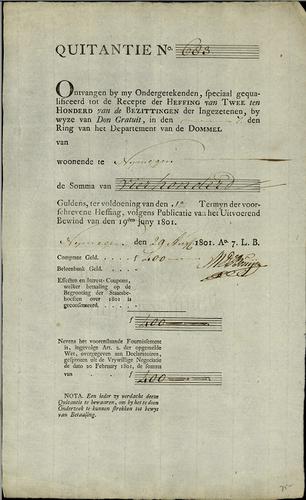 QUITANTIE No. 683
Ontvangen by my Ondergetekenden, speciaal gequa-
lificeerd tot de Recepte der HEFFING van TWEE ten
HONDERD van de BEZITTINGEN der Ingezetenen, by
wyze van Don Gratuit, in den
den
Ring van het Departement van de DOMMEL
van
woonende te Nymegen
de Somma van vierhonderd
Guldens, ter voldoening van den 1e Termyn der voor-
schrevene Heffing, volgens Publicatie van het Uitvoerend
Bewind van den 19den juny 1801.
Nymegen den 29 Aug 1801. Ao 7. L. B.
Comptant Geld. . . . . ƒ 400
Beleenbank Geld. . . .
Effecten en Intrest-Coupons,
welker betaaling op de
Begrooting der Staatsbe-
hoeften over 1801 is
geconsenteerd. . . . .
ƒ 400
Nevens het voorenstaande Fournissement
is, ingevolge Art. 2. der opgemelde
Wet, overgegeven aan Declaratoiren,
gesproten uit de Vrywillige Negociatie
de dato 20 February 1801, de somma
van . . . . . ƒ 400
NOTA. Een ieder zy verdacht deeze
Quitantie te bewaaren, om by het te doen
Onderzoek te kunnen strekken tot bewys
van Betaaling.